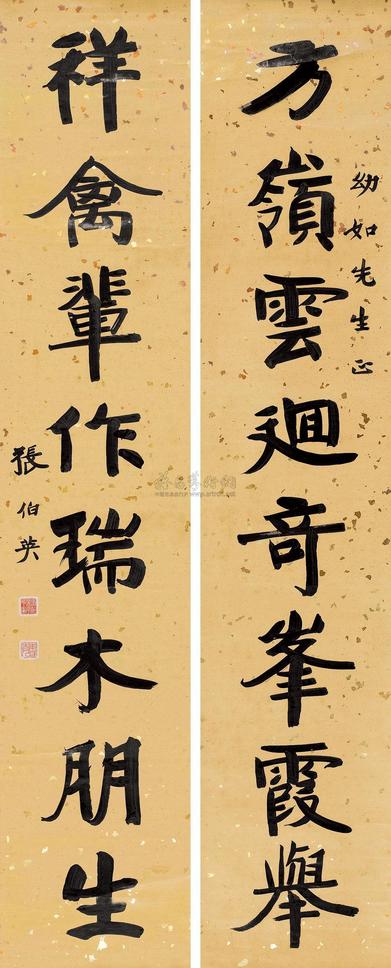 幼如先生正
方嶺雲迴奇峯霞舉
祥禽輩作瑞木朋生
張伯英